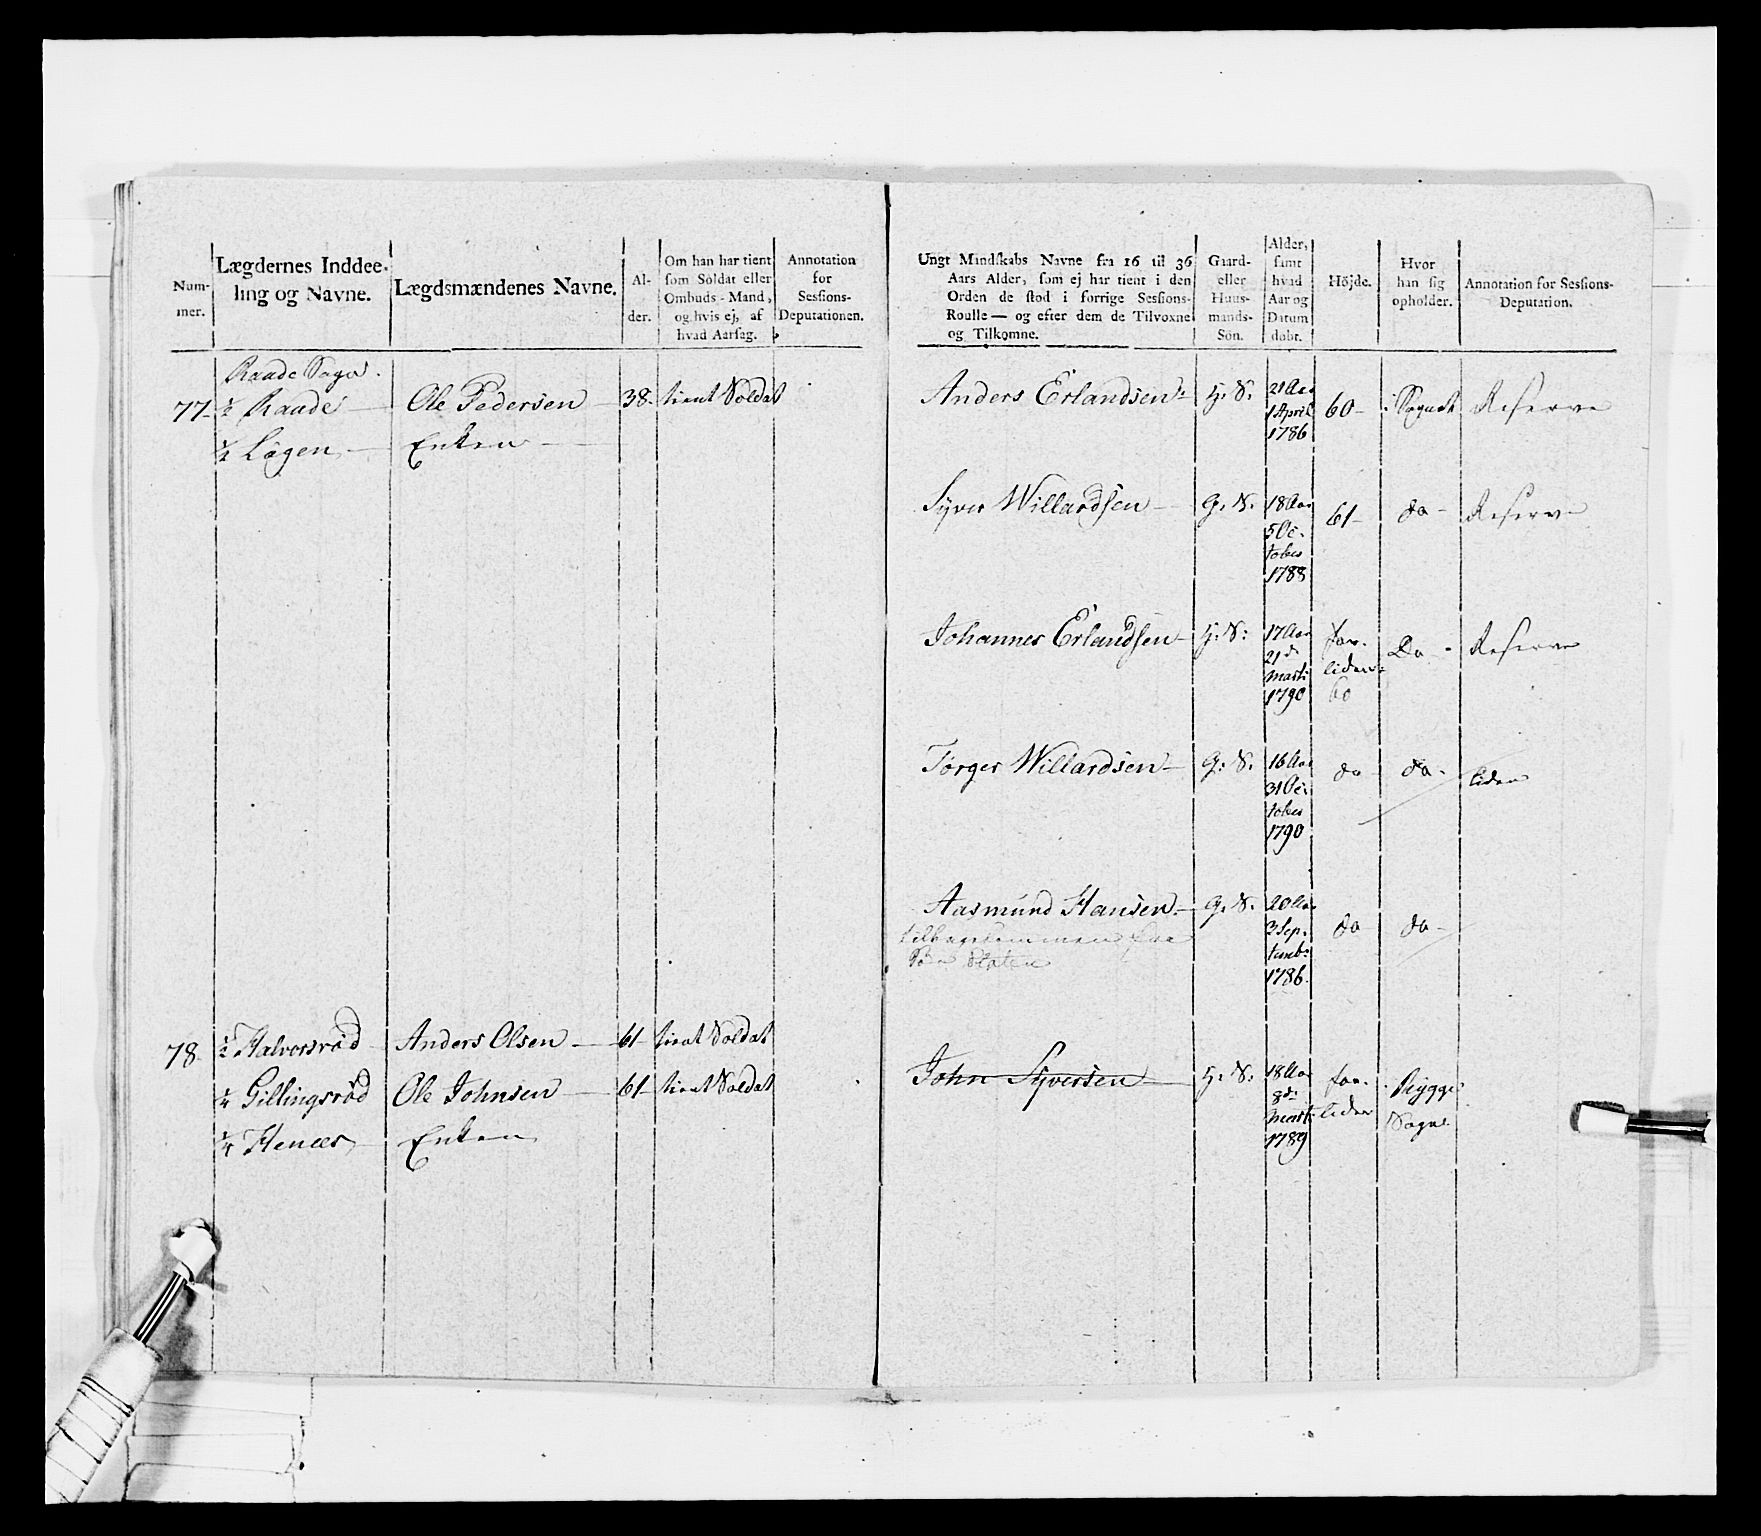 Num-
mer.
Lægdernes Inddee-
ling og Navne.
Lægdsmændenes Navne.
Al-
der.
Om han har tient
som Soldat eller
Ombuds-Mand,
og hvis ej, af
hvad Aarsag.
Annotation
for
Sessions-
Deputationen.
Raade Sogn.
77- ½ Raade Ole Pedersen 38- tient Soldat
Enken
78. ½ Halvorsrød Anders Olsen 61 tient Soldat
¼ Gillingsrød Ole Johnsen 61 tient Soldat
¼ Henæs Enken
Ungt Mandskabs Navne fra 16 til 36
Aars Alder, som ej har tient i den
Orden de stod i forrige Sessions-
Roulle — og efter dem de Tilvoxne
og Tilkomne.
Gaard-
eller
Huus-
mands-
Søn.
Alder,
samt
hvad
Aar og
Datum
døbt.
Højde.
Hvor
han sig
opholder.
Annotation for Sessions-
Deputation.
Anders Erlandsen H. S. 21 Aar
1 April
1786
60- i Sognet Reserve
Syver Willardsen G. S. 18 Aar
5 Oc-
tober
1788
61- do- Reserve
Johannes Erlandsen H. S: 17 Aar
21de
Marti
1790
for-
liden
60
Do - Reserve
Torger Willardsen G: S. 16 Aar
31 Oc-
tober
1790
do do- liden
Aasmund Hansen G. S. 20 Aar
3 Sep-
temb:
1786.
do do-
tilbagekommen fra
John Syversen H. S. 18 Aar
8de
Marti
1789
for-
liden
Rygge
Sogn.